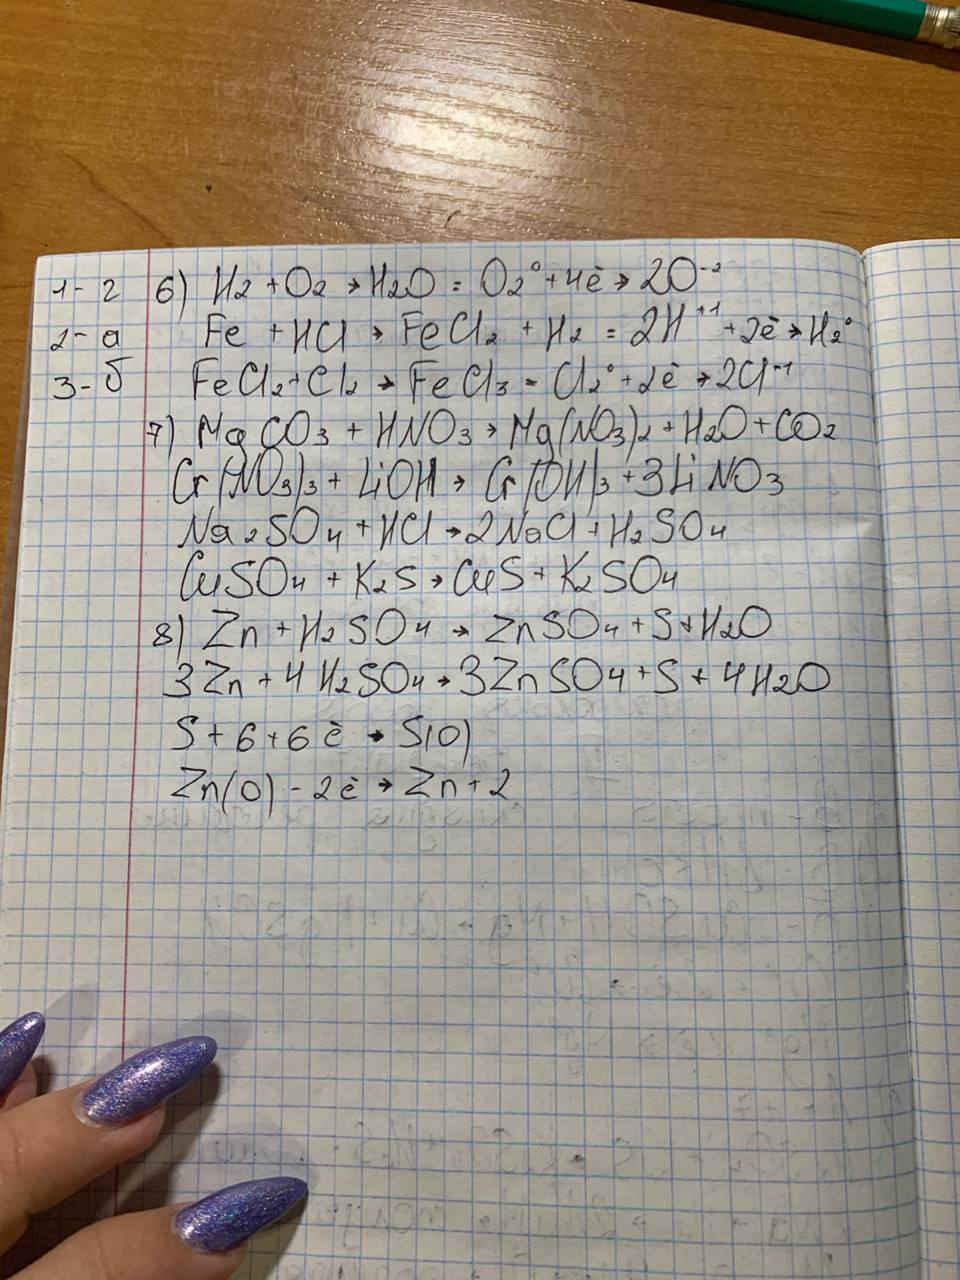 1 - г 6) H₂ + O₂ → H₂O = O₂⁰ + 4ē → 2O⁻²
2 - а Fe + HCl → FeCl₂ + H₂ = 2H⁺¹ + 2ē → H₂⁰
3 - б FeCl₂ + Cl₂ → FeCl₃ = Cl₂⁰ + 2ē → 2Cl⁻¹
7) MgCO₃ + HNO₃ → Mg(NO₃)₂ + H₂O + CO₂
Cr(NO₃)₃ + LiOH → Cr(OH)₃ + 3LiNO₃
Na₂SO₄ + HCl → 2NaCl + H₂SO₄
CuSO₄ + K₂S → CuS + K₂SO₄
8) Zn + H₂SO₄ → ZnSO₄ + S + H₂O
3Zn + 4H₂SO₄ → 3ZnSO₄ + S + 4H₂O
S + 6 + 6ē → S(0)
Zn(0) - 2ē → Zn + 2